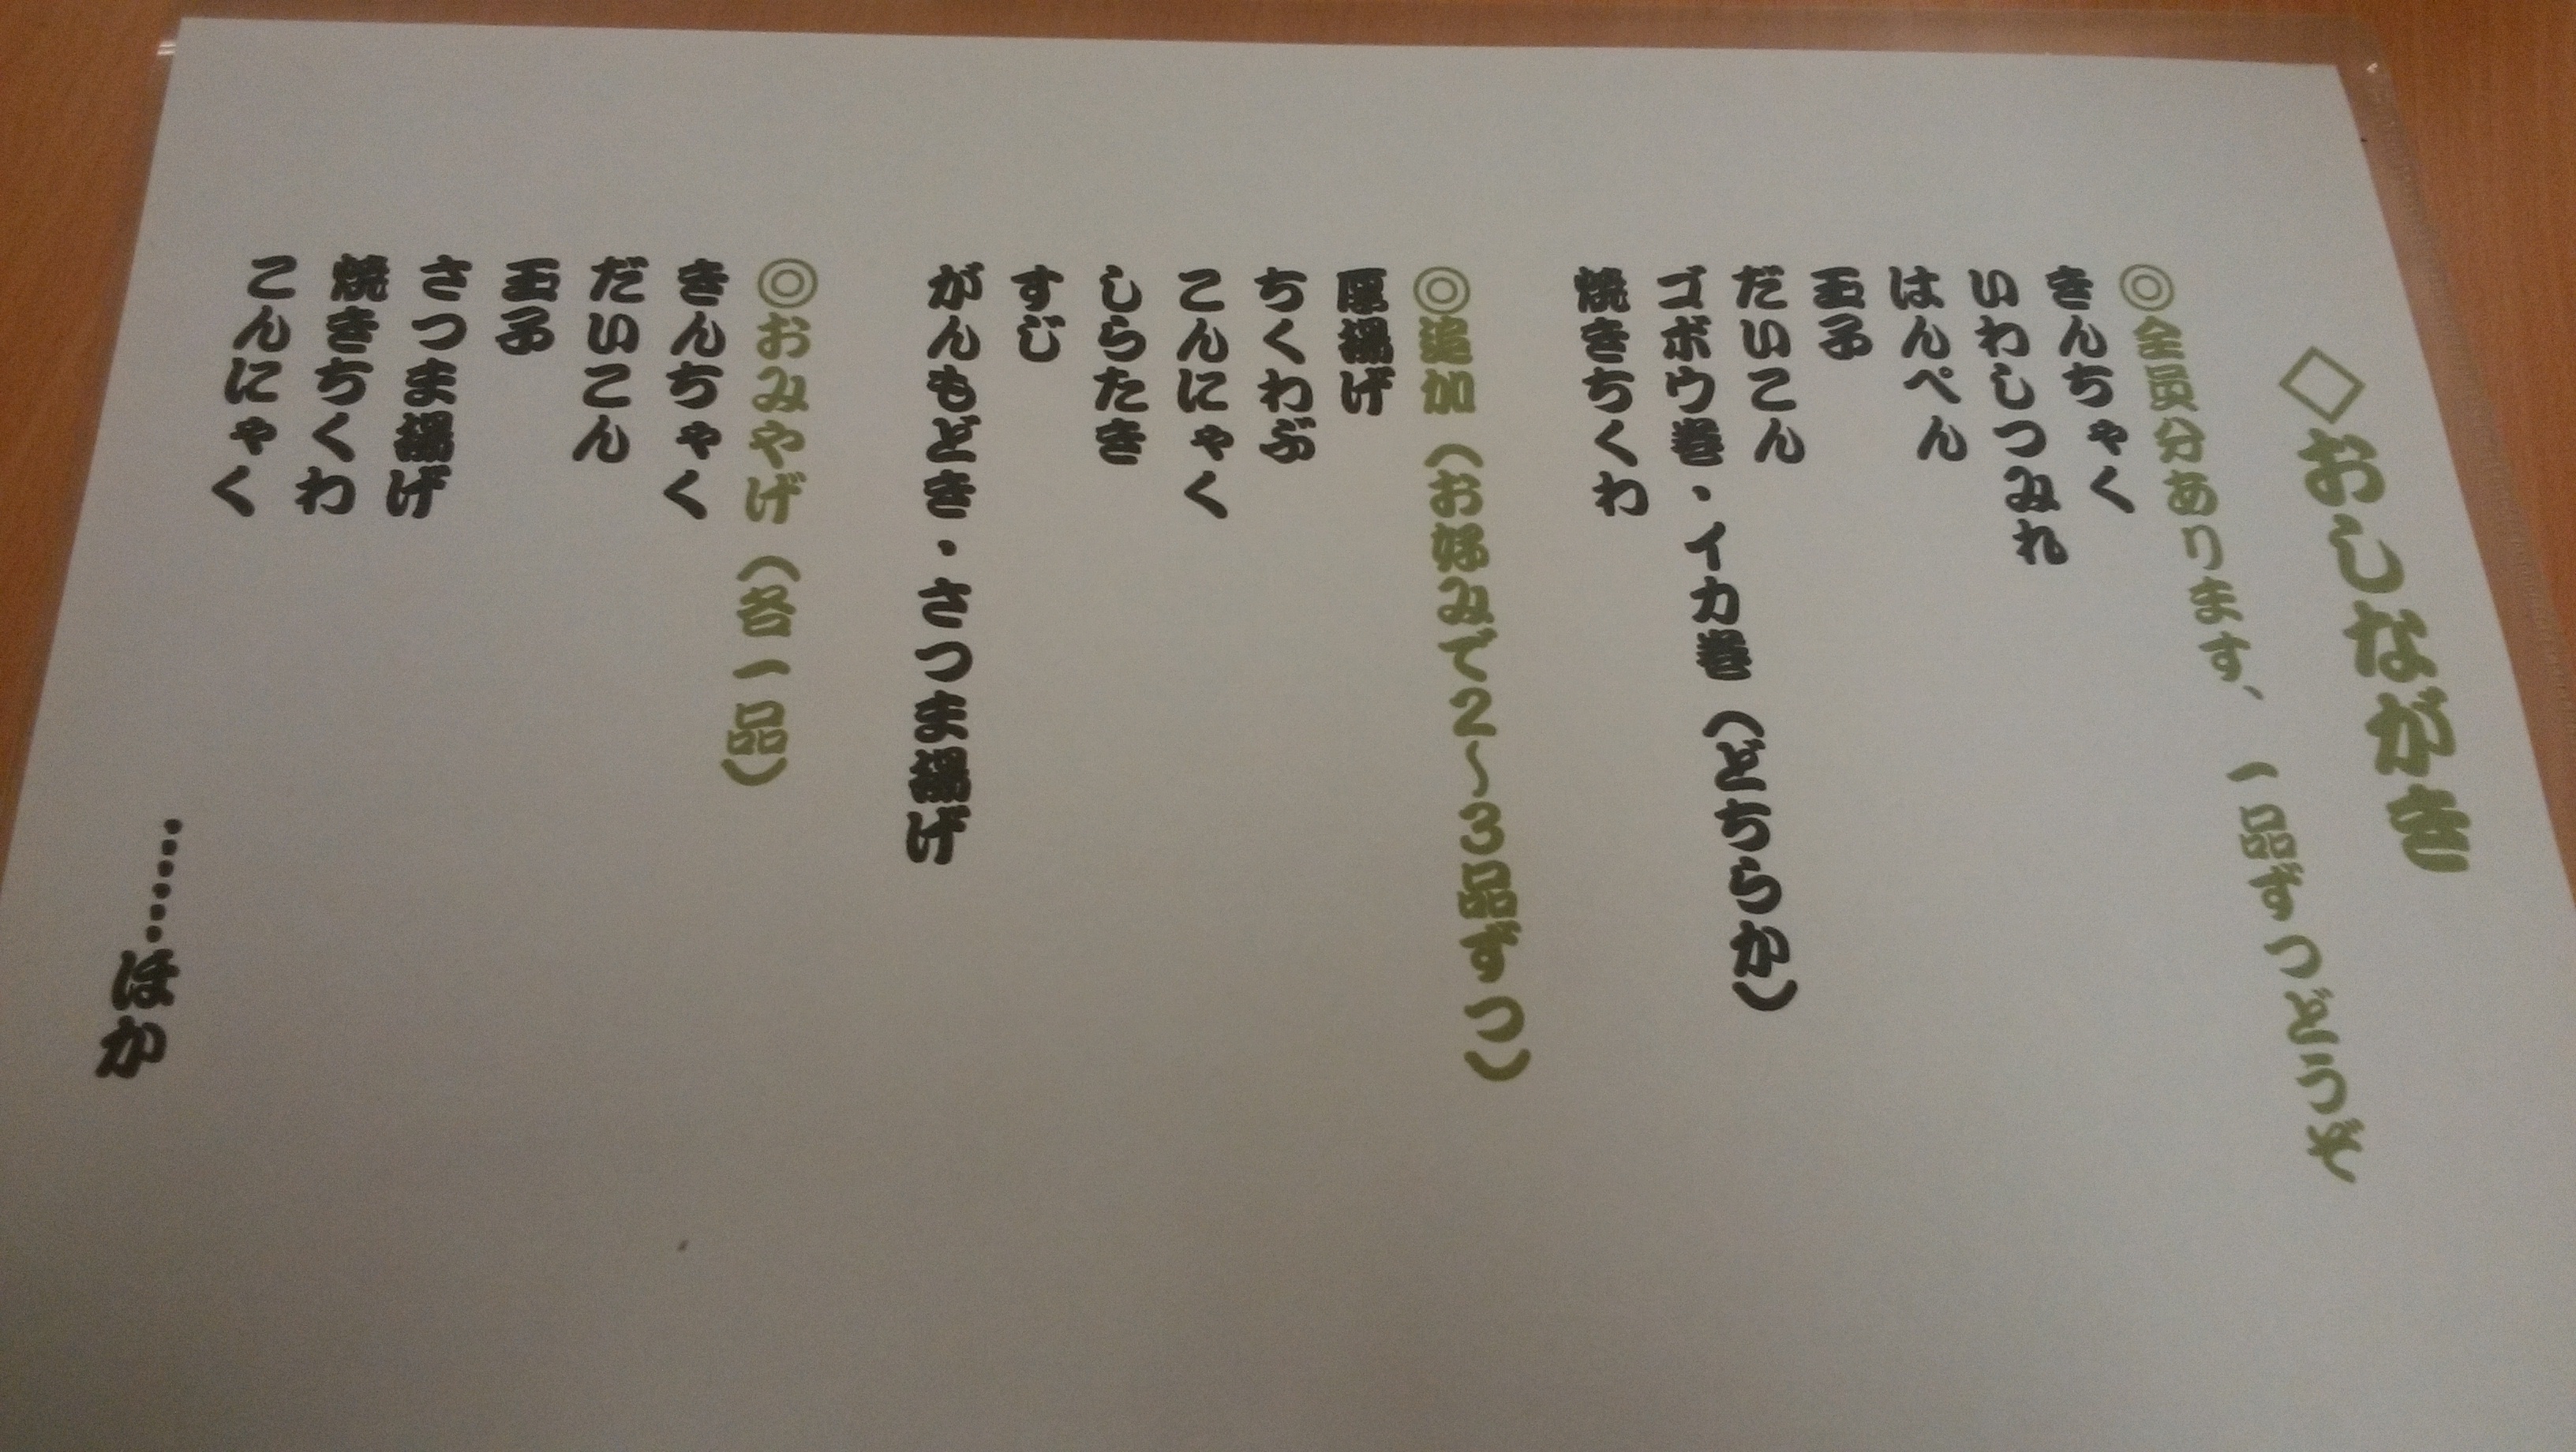 ◇おしながき
◎全員分あります、一品ずつどうぞ
きんちゃく
いわしつみれ
はんぺん
玉子
だいこん
ゴボウ巻・イカ巻（どちらか）
焼きちくわ
◎追加（お好みで2〜3品ずつ）
厚揚げ
ちくわぶ
こんにゃく
しらたき
すじ
がんもどき・さつま揚げ
◎おみやげ（各一品）
きんちゃく
だいこん
玉子
さつま揚げ
焼きちくわ
こんにゃく
……ほか